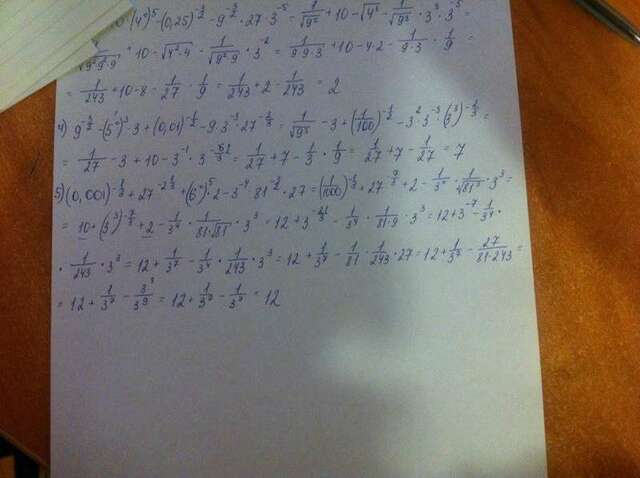 (4⁰)⁵-(0,25)^{-3/2}-9^{-3/2}·27·3^{-5} = 1/√9⁵+10-√4³-1/√9³·3³·3^{-5} =
1/√9²·9²·9+10-√4²·4-1/√9²·9·3^{-2} = 1/9·9·3+10-4·2-1/9·3·1/9 =
= 1/243+10-8-1/27·1/9 = 1/243+2-1/243 = 2
4) 9^{-3/2}-(5⁰)³·3+(0,01)^{-1/2}-9·3^{-3}·27^{-2/3} = 1/√9³-3+(1/100)^{-1/2}-3²·3^{-3}·(3³)^{-2/3} =
= 1/27-3+10-3^{-1}·3^{-6/3} = 1/27+7-1/3·1/9 = 1/27+7-1/27 = 7
5) (0,001)^{-1/3}+27^{-2 1/3}+(6⁰)⁵·2-3^{-4}·81^{-3/2}·27 = (1/1000)^{-1/3}+27^{-7/3}+2-1/3⁴·1/√81³·3³ =
= 10+(3³)^{-7/3}+2-1/3⁴·1/81·√81·3³ = 12+3^{-21/3}-1/3⁴·1/81·9·3³ = 12+3^{-7}-1/3⁴·
·1/243·3³ = 12+1/3⁷-1/3⁴·1/243·3³ = 12+1/3⁷-1/81·1/243·27 = 12+1/3⁷-27/81·243 =
= 12+1/3⁷-3³/3⁹ = 12+1/3⁷-1/3⁷ = 12